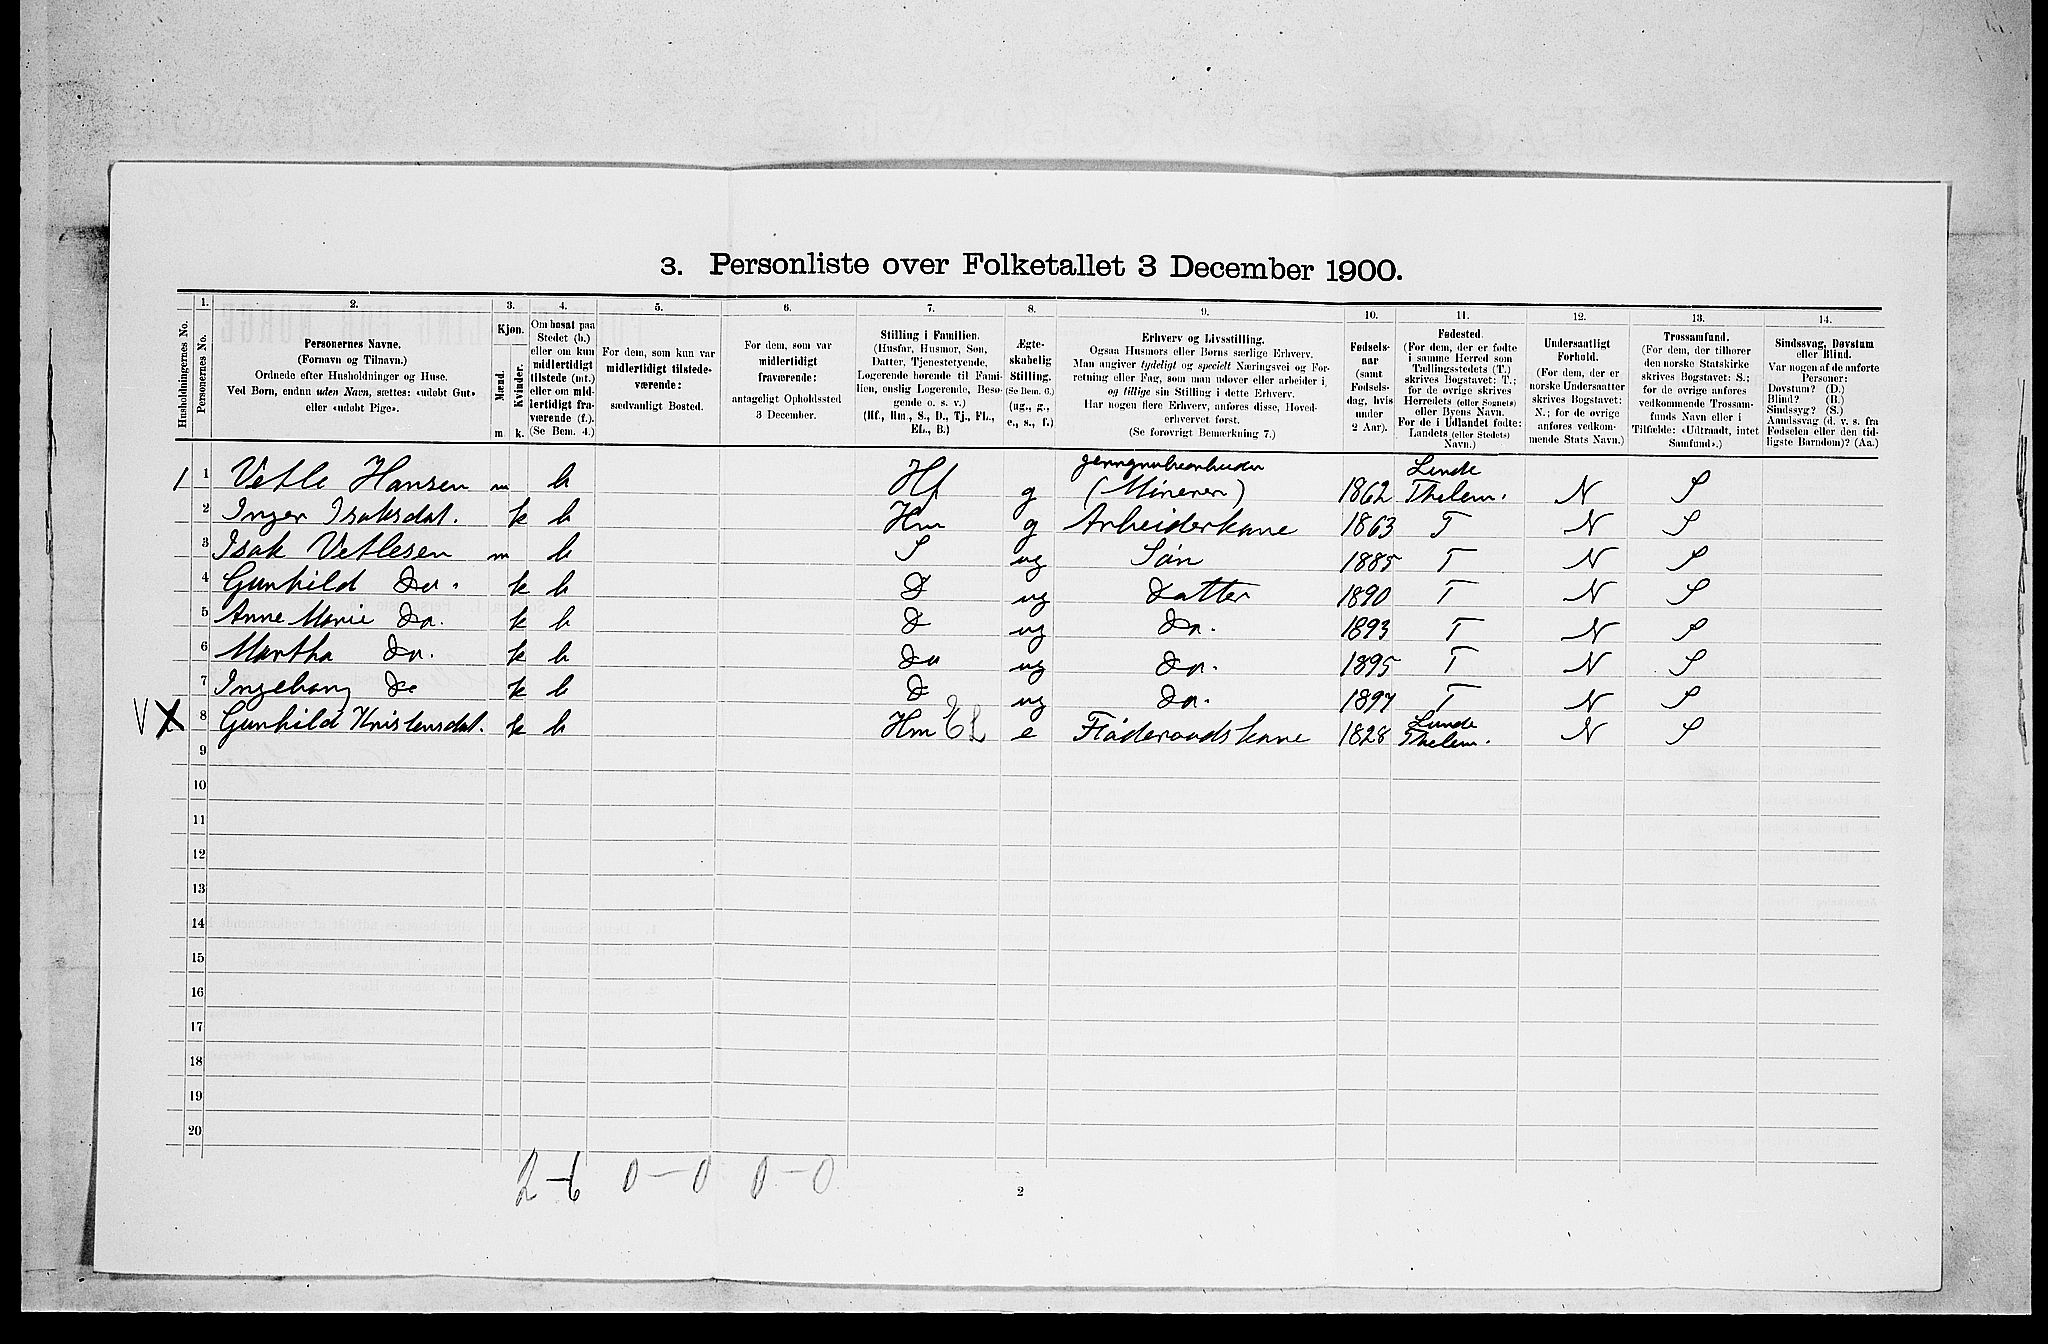 3. Personliste over Folketallet 3 December 1900.
Husholdningernes No.
1.
Personernes No.
2.
Personernes Navne.
(Fornavn og Tilnavn.)
Ordnede efter Husholdninger og Huse.
Ved Børn, endnu uden Navn, sættes: «udøbt Gut»
eller «udøbt Pige».
3.
Kjøn.
Mænd.
Kvinder.
m. k.
4.
Om bosat paa
Stedet (b.)
eller om kun
midlertidigt
tilstede (mt.)
eller om mid-
lertidigt fra-
værende (f.).
(Se Bem. 4.)
5.
For dem, som kun var
midlertidigt tilstede-
værende:
sædvanligt Bosted.
6.
For dem, som var
midlertidigt
fraværende:
antageligt Opholdssted
3 December.
7.
Stilling i Familien.
(Husfar, Husmor, Søn,
Datter, Tjenestetyende,
Logerende hørende til Fami-
lien, enslig Logerende, Besø-
gende o. s. v.)
(Hf., Hm., S., D., Tj., FL.,
EL., B.)
8.
Ægte-
skabelig
Stilling.
(Se Bem. 6.)
(ug., g.,
e., s., f.)
9.
Erhverv og Livsstilling.
Ogsaa Husmors eller Børns særlige Erhverv.
Man angiver tydeligt og specielt Næringsvei og For-
retning eller Fag, som man udøver eller arbeider i,
og tillige sin Stilling i dette Erhverv.
Har nogen flere Erhverv, anføres disse, Hoved-
erhvervet først.
(Se forøvrigt Bemerkning 7.)
10.
Fødsels-
aar
(samt
Fødsels-
dag, hvis
under
2 Aar).
11.
Fødested.
(For dem, der er fødte
i samme Herred som
Tællingsstedets (T.)
skrives Bogstavet: T.;
for de øvrige skrives
Herredets (eller Sognets)
eller Byens Navn.
For de i Udlandet fødte:
Landets (eller Stedets)
Navn.)
12.
Undersaatligt
Forhold.
(For dem, der er
norske Undersaatter
skrives Bogstavet:
N.; for de øvrige
anføres vedkom-
mende Stats Navn.)
13.
Trossamfund.
(For dem, der tilhører
den norske Statskirke
skrives Bogstavet: S.;
for de øvrige anføres
vedkommende Trossam-
funds Navn eller i
Tilfælde: «Udtraadt, intet
Samfund».)
14.
Sindssvag, Døvstum
eller Blind.
Var nogen af de anførte
Personer:
Døvstum? (D.)
Blind? (B.)
Sindssyg? (S.)
Aandssvag (d. v. s. fra
Fødselen eller den tid-
ligste Barndom)? (Aa.)
1 1 Vetle Hansen m b Hf g (Minerer) 1862 Lunde Thelem. N S
2 Inger Isaksdat. k b Hm g Arbeiderkone 1863 T N S
3 Isak Vetlesen m b S ug Søn 1885 T N S
4 Gunhild Do. k b D ug Datter 1890 T N S
5 Anne Marie Do. k b D ug Do. 1893 T N S
6 Martha Do. k b Do ug Do. 1895 T N S
7 Ingeborg Do k b D ug Do. 1897 T N S
V X 8 Gunhild Kristensdat. k b Hm EL e Føderaadskone 1828 Lunde Thelem. N S
9
10
11
12
13
14
15
16
17
18
19
20
2-6 0-0 0-0
2